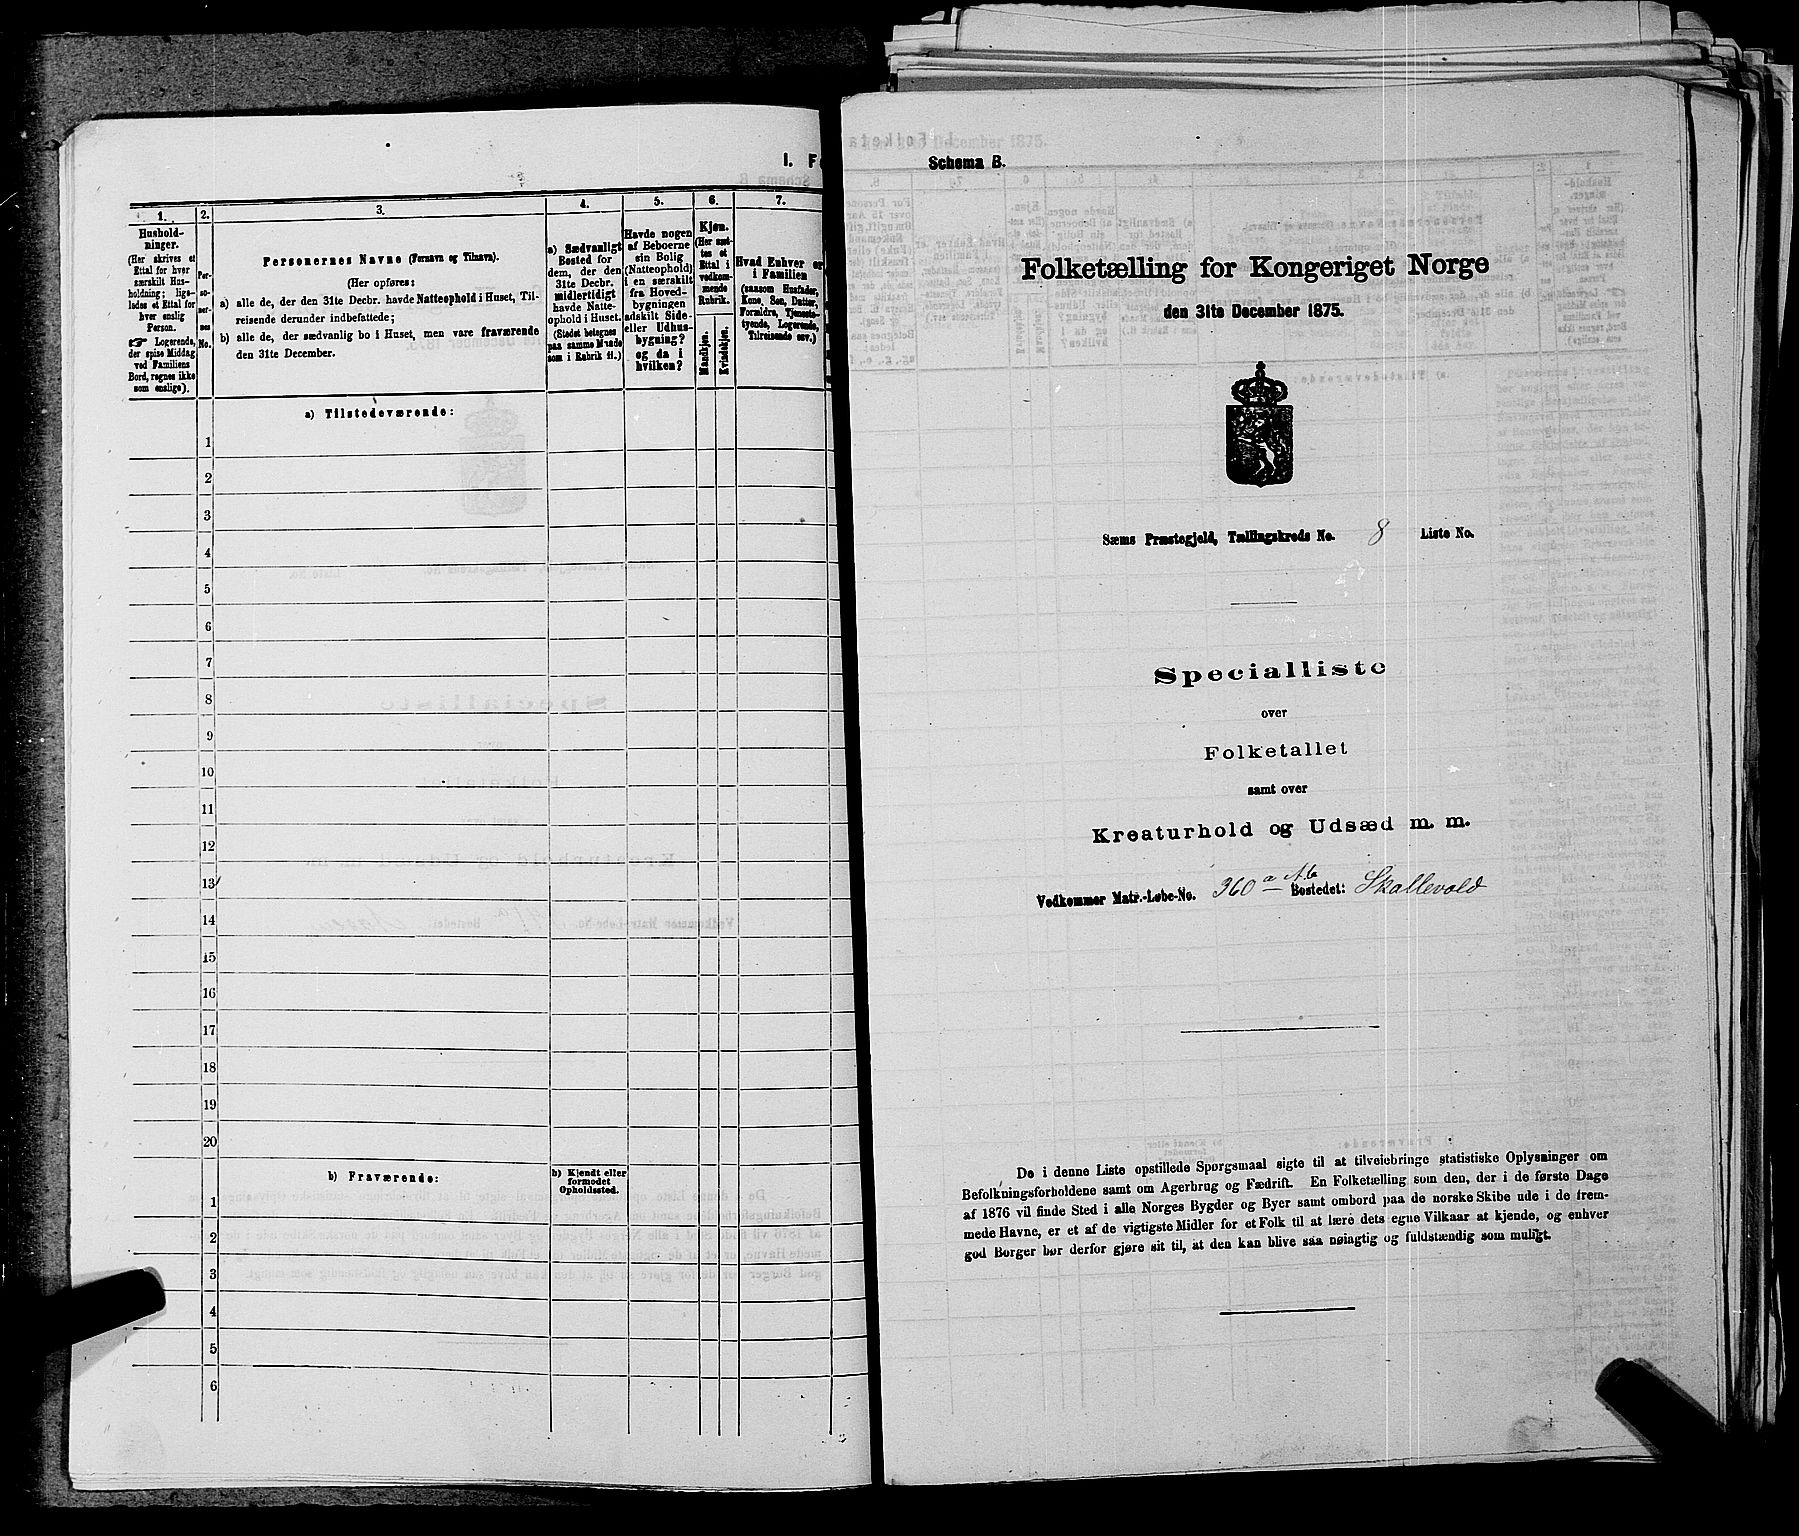 I. F
1.
2.
3.
4.
5.
6.
7.
Hushold-
ninger.
(Her skrives et
Ettal for hver
særskilt Hus-
holdning; lige-
ledes et Ettal for
hver enslig
Person.
☞ Logerende,
der spise Middag
ved Familiens
Bord, regnes ikke
som enslige).
Per-
so-
ner-
nes
No.
Personernes Navne (Fornavn og Tilnavn).
(Her opføres:
a) alle de, der den 31te Decbr. havde Natteophold i Huset, Til-
reisende derunder indbefattede;
b) alle de, der sædvanlig bo i Huset, men vare fraværende
den 31te December.
a) Sædvanligt
Bosted for
dem, der den
31te Decbr.
midlertidigt
havde Natte-
ophold i Huset.
(Stedet betegnes
paa samme Maade
som i Rubrik 11.)
Havde nogen
af Beboerne
sin Bolig
(Natteophold)
i en særskilt
fra Hoved-
bygningen
adskilt Side-
eller Udhus-
bygning?
og da i
hvilken?
Kjøn.
(Her sæt-
tes et
Ettal i
vedkom-
mende
Rubrik.
Mandkjøn.
Kvindekjøn.
Hvad Enhver er
i Familien
(saasom Husfader,
Kone, Søn, Datter,
Forældre, Tjeneste-
tyende, Logerende,
Tilreisende osv.)
a) Tilstedeværende:
1
2
3
4
5
6
7
8
9
10
11
12
13
14
15
16
17
18
19
20
b) Fraværende:
b) Kjendt eller
formodet
Opholdssted.
1
2
3
4
5
6
Schema B.
Folketælling for Kongeriget Norge
den 31te December 1875.
Sæms Præstegjeld, Tællingskreds No. 8 Liste No.
Specialliste
over
Folketallet
samt over
Kreaturhold og Udsæd m. m.
Vedkommer Matr.-Løbe-No. 360 a Bostedet: Skallevold
De i denne Liste opstillede Spørgsmaal sigte til at tilveiebringe statistiske Oplysninger om
Befolkningsforholdene samt om Agerbrug og Fædrift. En Folketælling som den, der i de første Dage
af 1876 vil finde Sted i alle Norges Bygder og Byer samt ombord paa de norske Skibe ude i de frem-
mede Havne, er et af de vigtigste Midler for et Folk til at lære dets egne Vilkaar at kjende, og enhver
god Borger bør derfor gjøre sit til, at den kan blive saa nøiagtig og fuldstændig som muligt.